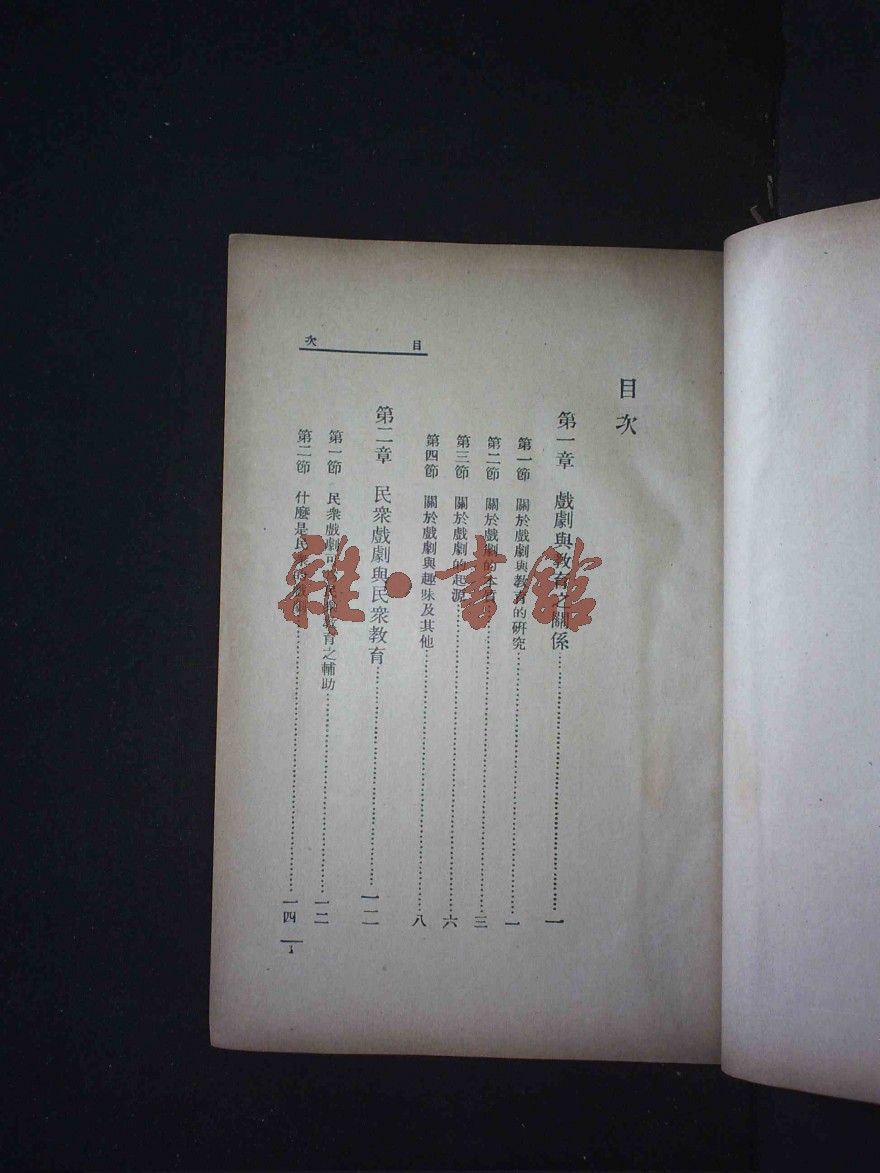 目次
目次
第一章 戲劇與教育之關係……一
第一節 關於戲劇與教育的研究……一
第二節 關於戲劇的本質……三
第三節 關於戲劇的起源……六
第四節 關於戲劇與趣味及其他……八
第二章 民衆戲劇與民衆教育……一二
第一節 民衆戲劇可 民衆教育之輔助……一二
第二節 什麼是民衆的戲劇……一四
1
雜·書館